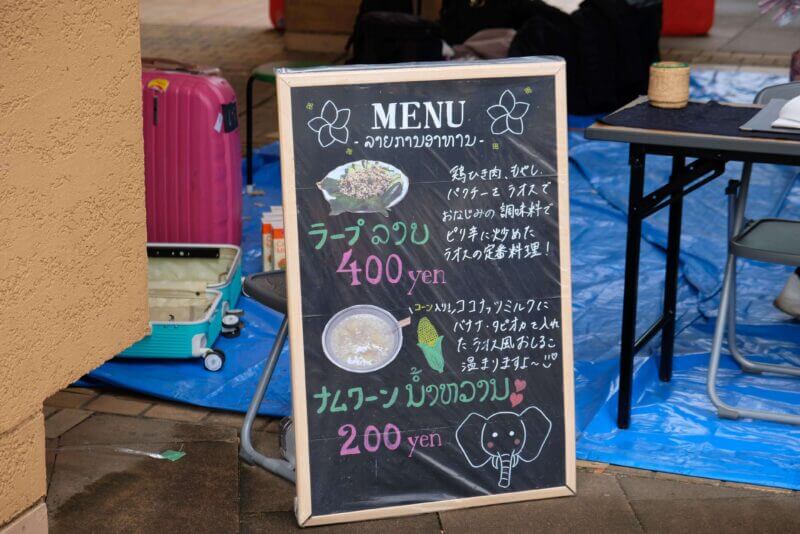 MENU
- ລາຍການອາຫານ -
鶏ひき肉、もやし、
パクチーをラオスで
おなじみの調味料で
ピリ辛に炒めた
ラオスの定番料理!
ラープ ລາບ
400 yen
コーン入り! ココナッツミルクに
バナナ・タピオカを入れ
たラオス風おしるこ
温まりますよ〜
ナムワーン ນ້ຳຫວານ
200 yen